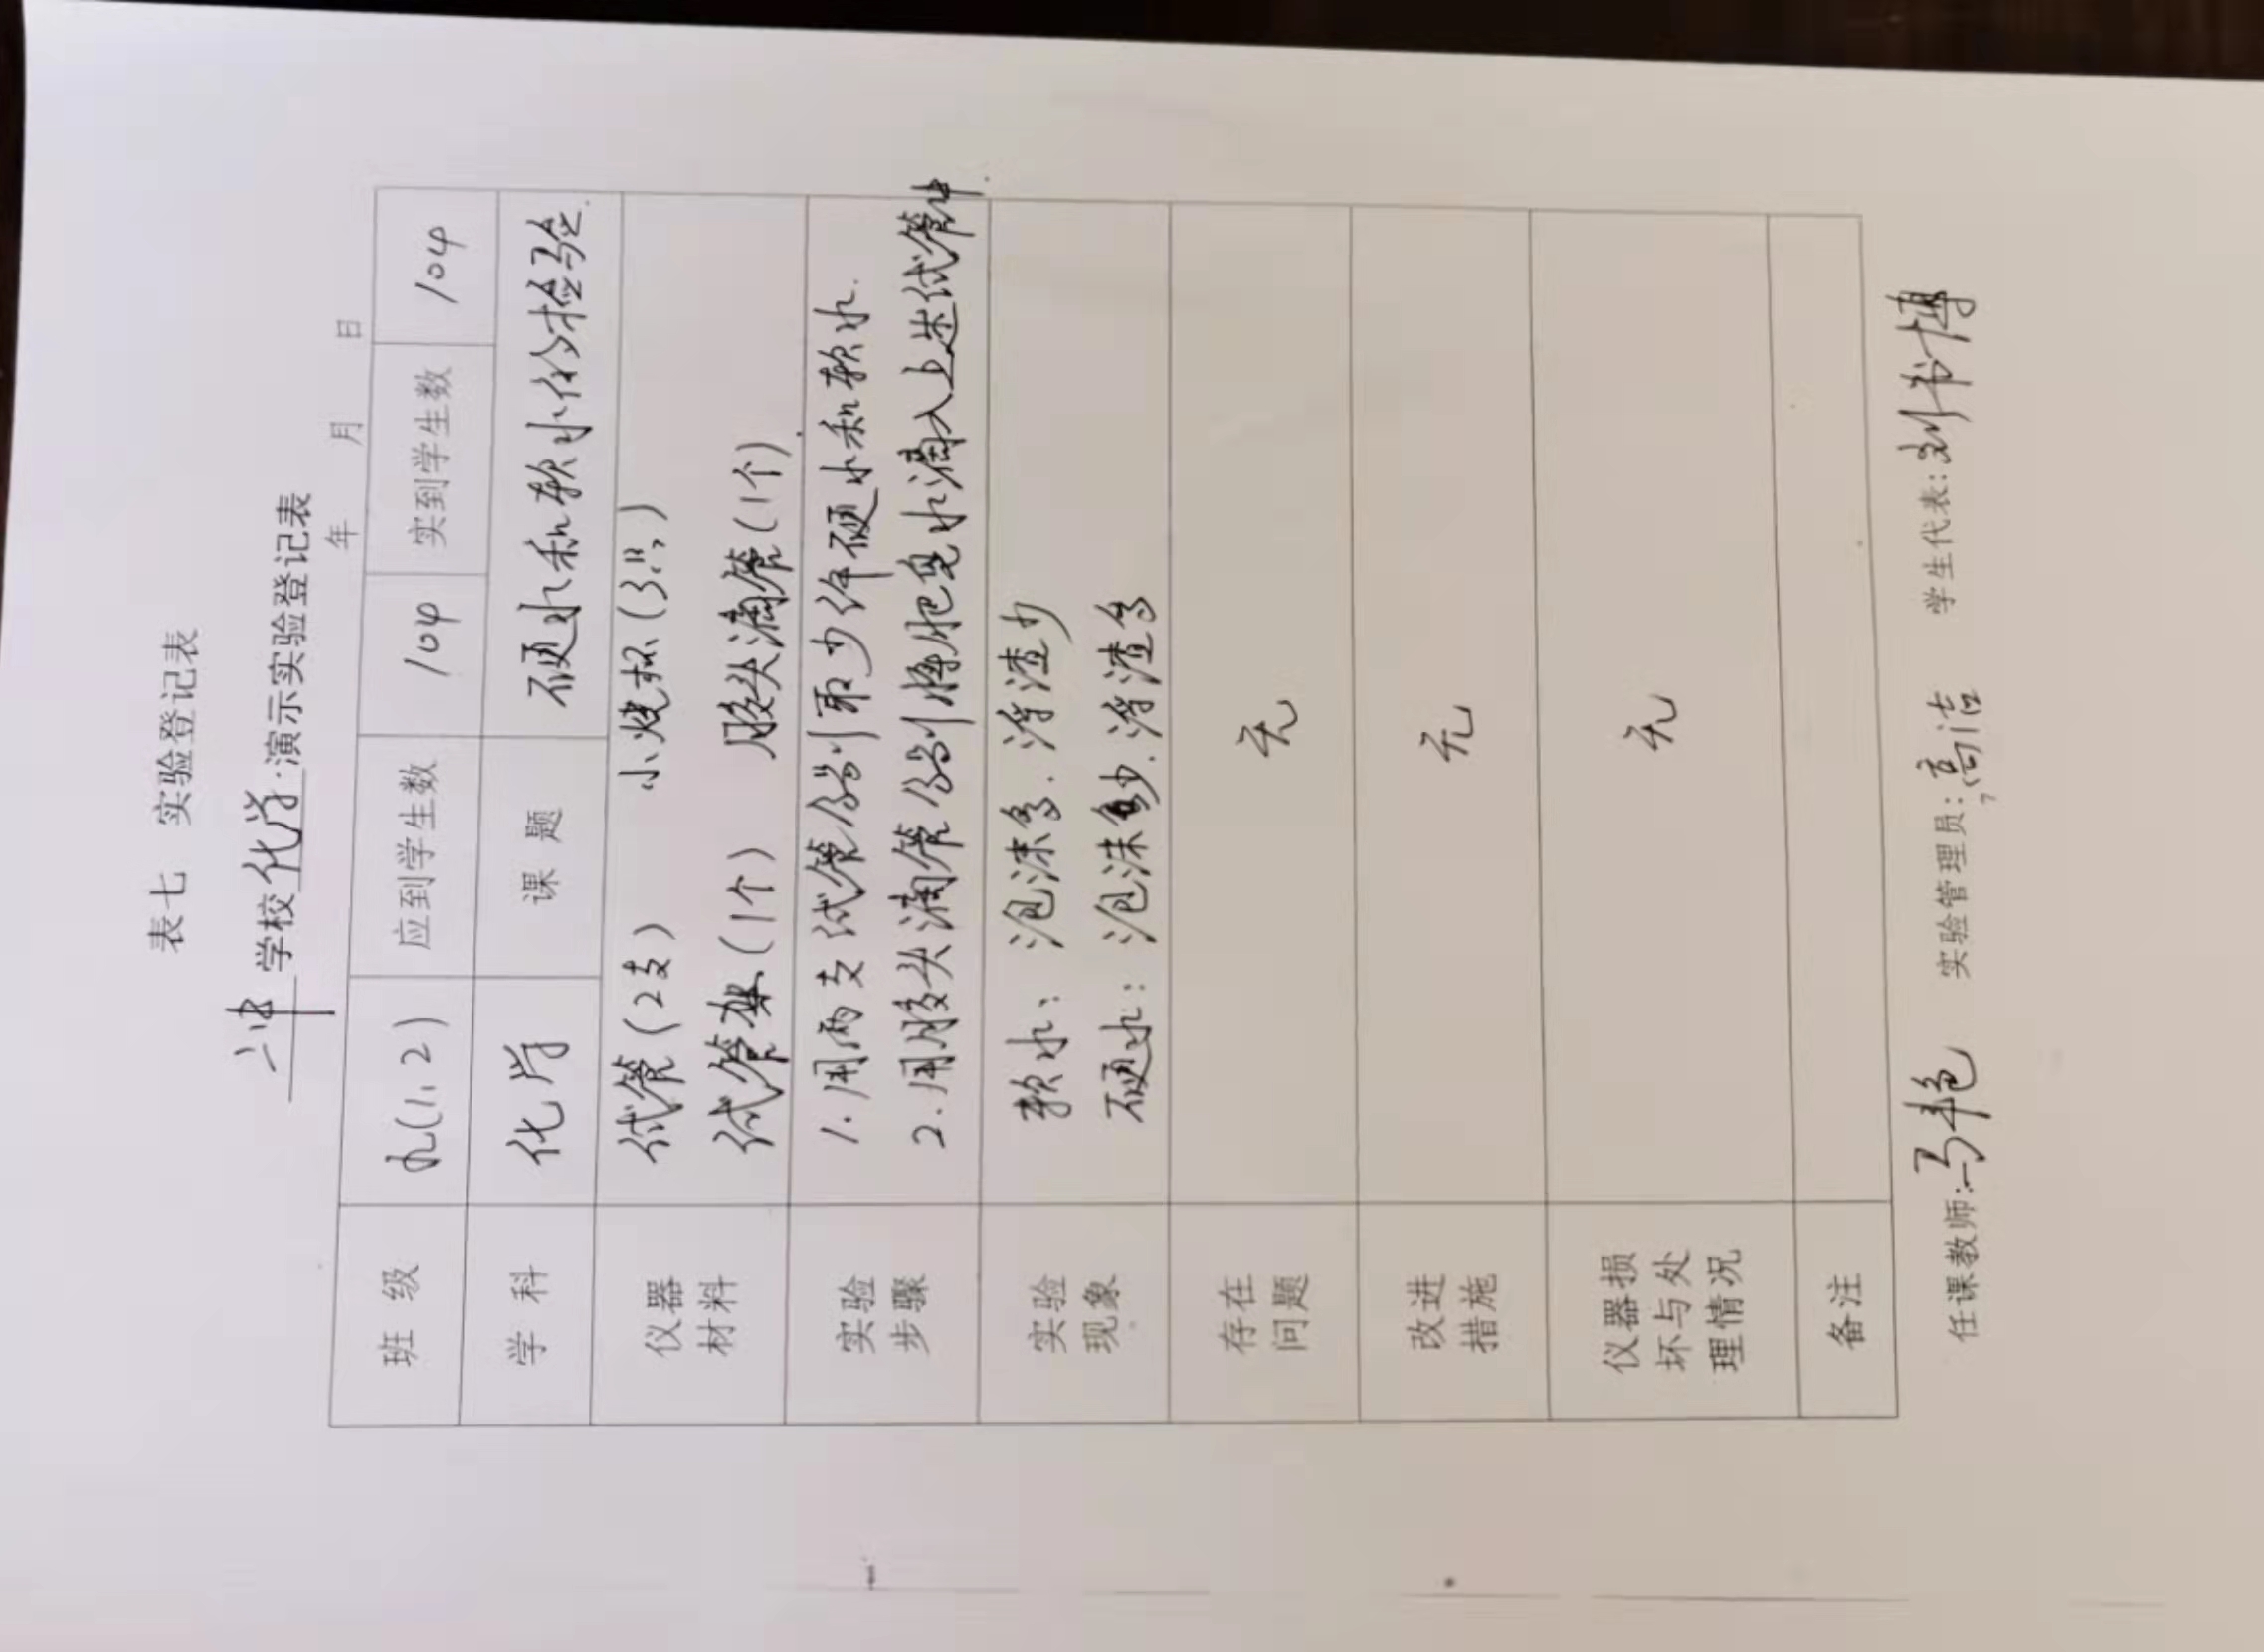 表七 实验登记表
学校化学演示实验登记表
年 月 日
班级 九(1、2) 应到学生数 104 实到学生数 104
学科 化学 课题 硬水和软水的检验
仪器材料 试管(2支) 小烧杯(3个)
试管架(1个) 胶头滴管(1个)
实验步骤 1.用两支试管分别取少许硬水和软水.
2.用胶头滴管分别将肥皂水滴入上述试管中.
实验现象 软水: 泡沫多.浮渣少
硬水: 泡沫少.浮渣多
存在问题 无
改进措施 无
仪器损坏与处理情况 无
备注
任课教师:马艳 实验管理员:高洁 学生代表:刘书博